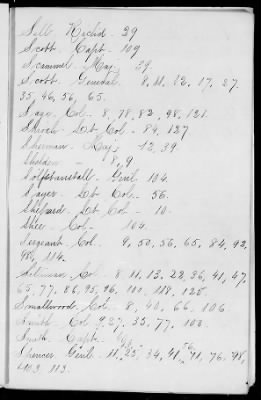 Sill Richd - 29
Scott Capt - 109
Scammel Maj - 29.
Scott General 8, 11, 12, 17, 27.
35, 46, 56, 65.
Sage Col - 8, 78, 82, 98, 121.
Lt Col - 84, 127
Sherman Maj - 12, 39.
Sheldon - 8, 9
Genl 104.
Sayer Lt Col - 56.
Shepard Lt Col - 10.
Col - 104.
Sergeant Col. 9, 50, 56, 65, 84, 92,
98, 114.
Silliman Col 8 11, 13, 22, 36, 41, 47,
65, 77, 86, 95, 96, 100, 118, 125.
Smallwood Col. 8, 40, 66, 106.
Smith Col 9, 27, 35, 77, 100.
Smith Capt
Spencer Genl 11, 25, 34, 41, 56, 71, 76, 98,
103, 113.